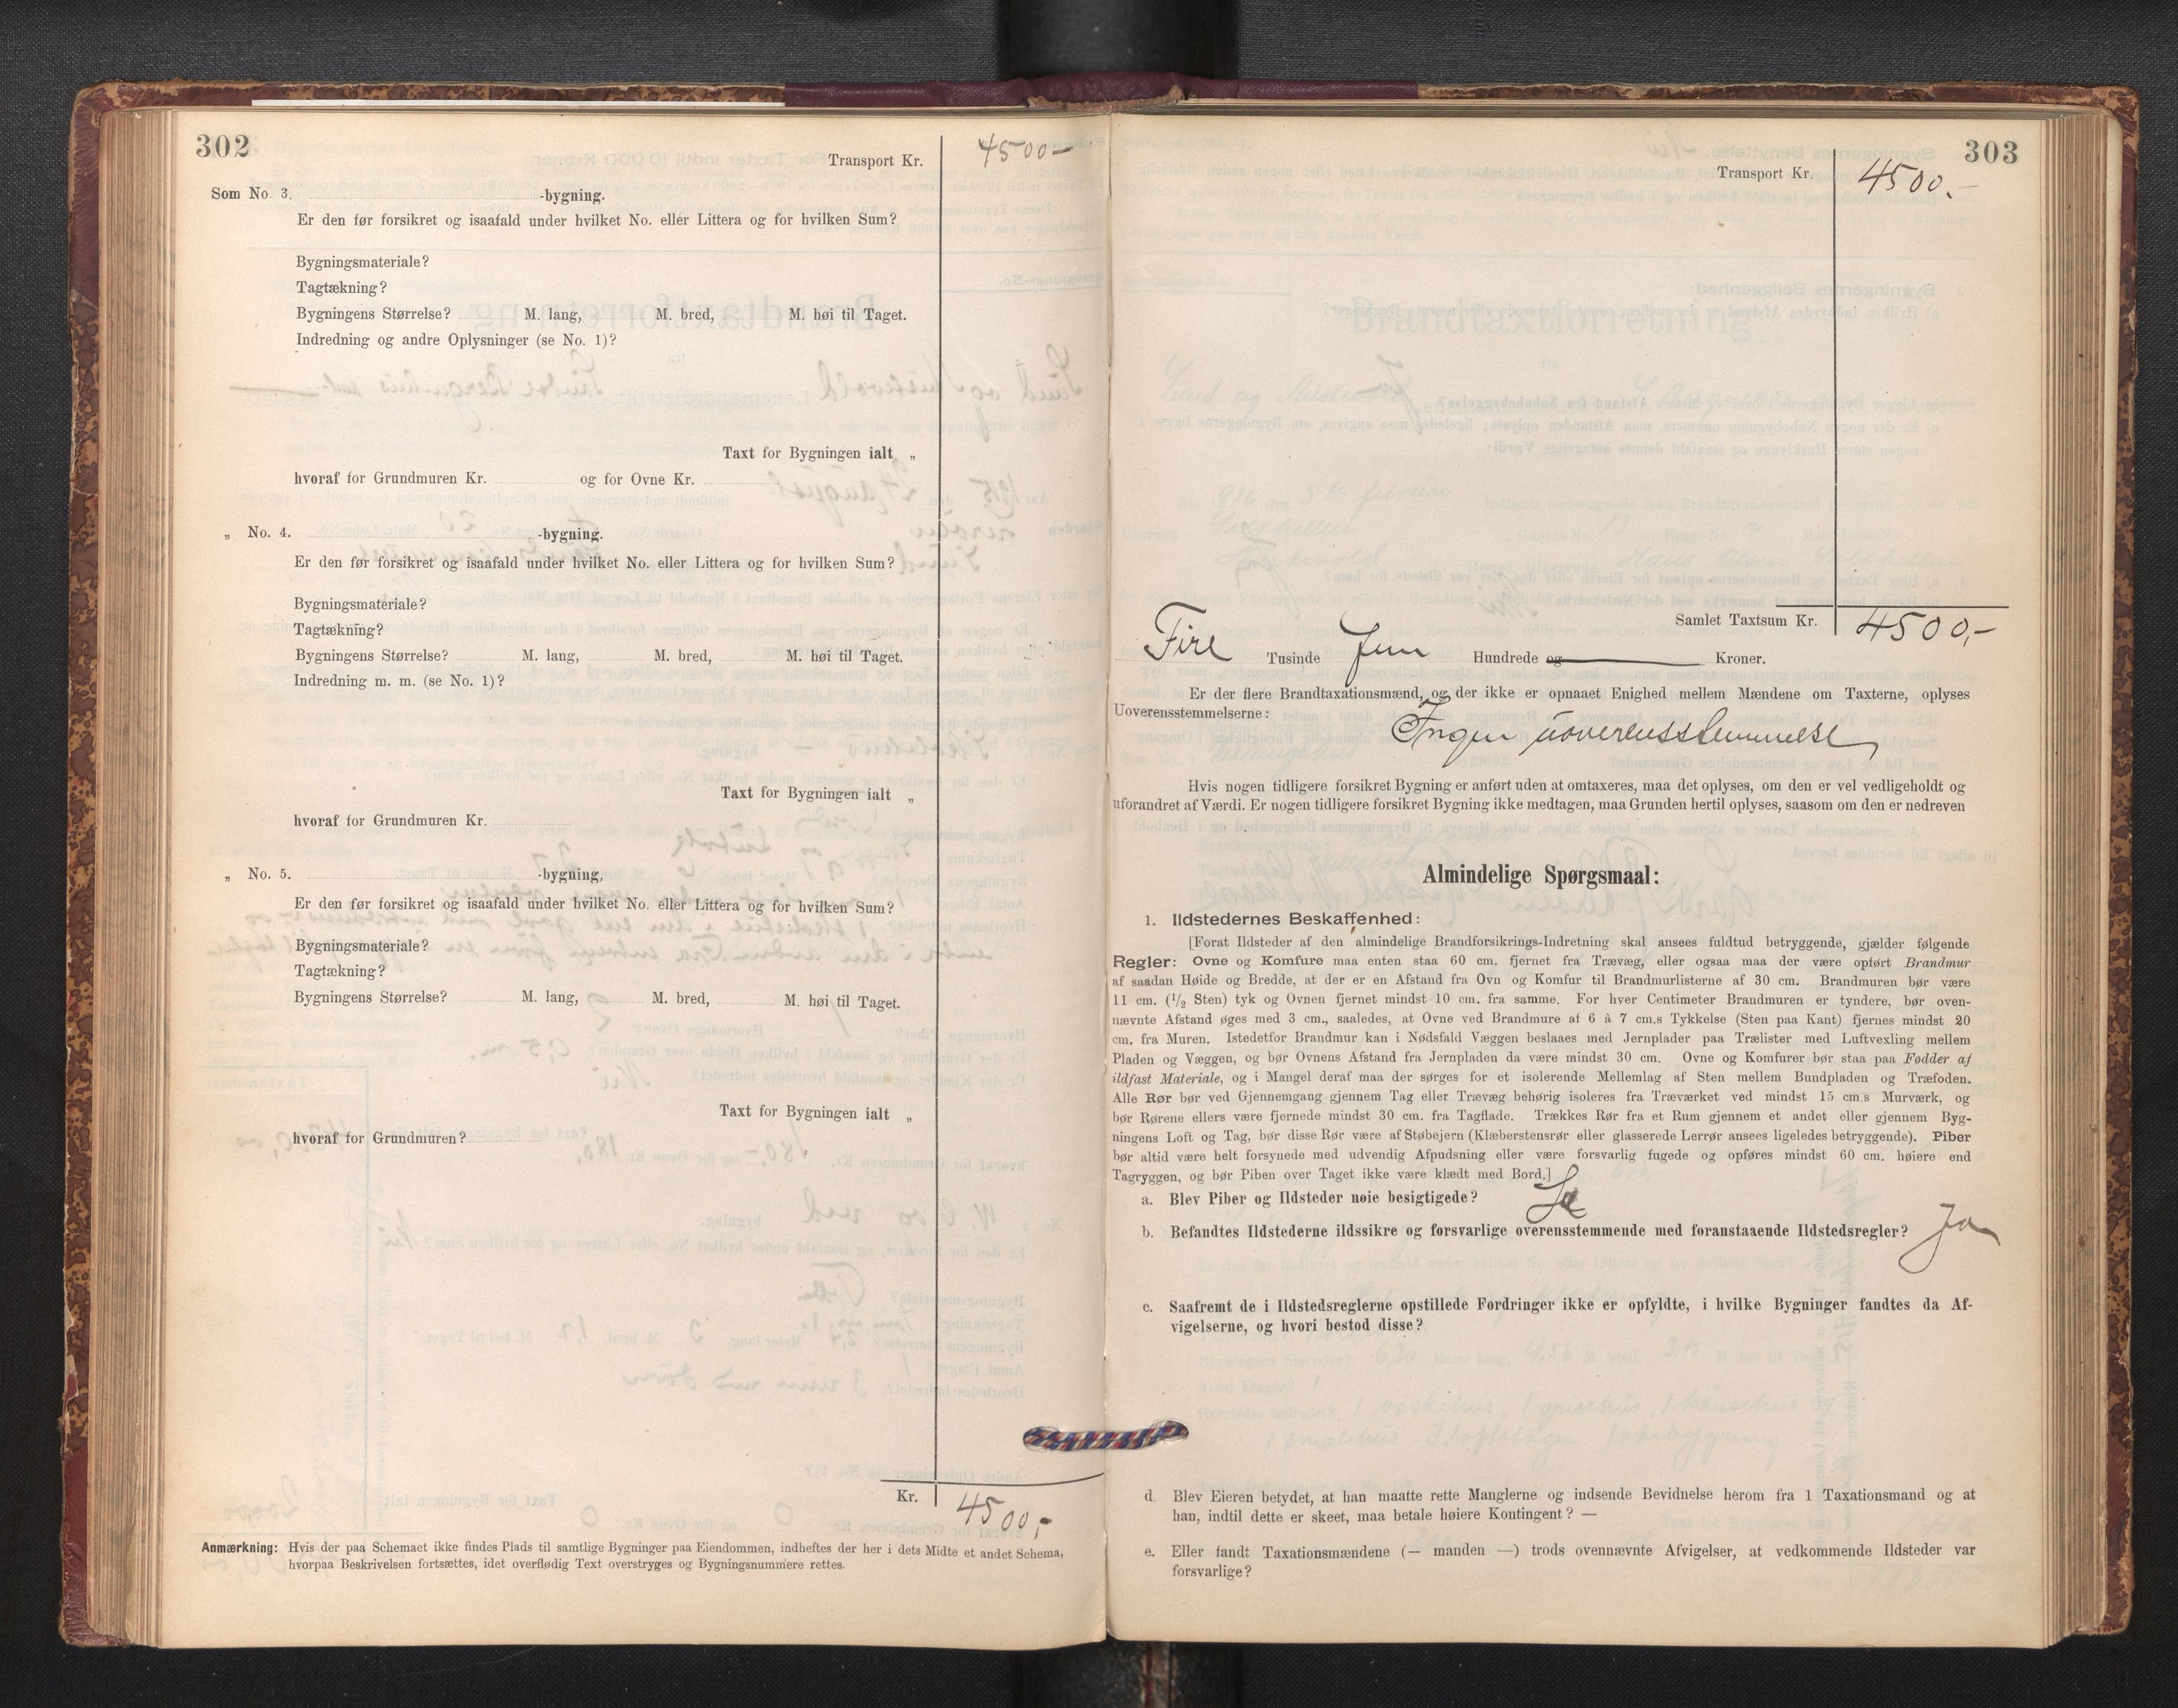 302
Transport Kr. 4500-
Som No. 3. -bygning.
Er den før forsikret og isaafald under hvilket No. eller Littera og for hvilken Sum?
Bygningsmateriale?
Tagtækning?
Bygningens Størrelse? M. lang, M. bred, M. høi til Taget.
Indredning og andre Oplysninger (se No. 1)?
Taxt for Bygningen ialt „
hvoraf for Grundmuren Kr. og for Ovne Kr.
„ No. 4. -bygning.
Er den før forsikret og isaafald under hvilket No. eller Littera og for hvilken Sum?
Bygningsmateriale?
Tagtækning?
Bygningens Størrelse? M. lang, M. bred, M. høi til Taget.
Indredning m. m. (se No. 1)?
Taxt for Bygningen ialt „
hvoraf for Grundmuren Kr.
„ No. 5. -bygning,
Er den før forsikret og isaafald under hvilket No. eller Littera og for hvilken Sum?
Bygningsmateriale?
Tagtækning?
Bygningens Størrelse? M. lang, M. bred, M. høi til Taget.
Taxt for Bygningen ialt „
hvoraf for Grundmuren?
Kr. 4500,-
Anmærkning: Hvis der paa Schemaet ikke findes Plads til samtlige Bygninger paa Eiendommen, indheftes der her i dets Midte et andet Schema,
hvorpaa Beskrivelsen fortsættes, idet overflødig Text overstryges og Bygningsnummere rettes.
303
Transport Kr. 4500.-
Samlet Taxtsum Kr. 4500,-
Fire Tusinde fem Hundrede og Kroner.
Er der flere Brandtaxationsmænd, og der ikke er opnaaet Enighed mellem Mændene om Taxterne, oplyses
Uoverensstemmelserne:
Ingen uoverensstemmelse
Hvis nogen tidligere forsikret Bygning er anført uden at omtaxeres, maa det oplyses, om den er vel vedligeholdt og
uforandret af Værdi. Er nogen tidligere forsikret Bygning ikke medtagen, maa Grunden hertil oplyses, saasom om den er nedreven
Almindelige Spørgsmaal:
1. Ildstedernes Beskaffenhed:
[Forat Ildsteder af den almindelige Brandforsikrings-Indretning skal ansees fuldtud betryggende, gjælder følgende
Regler: Ovne og Komfure maa enten staa 60 cm. fjernet fra Trævæg, eller ogsaa maa der være opført Brandmur
af saadan Høide og Bredde, at der er en Afstand fra Ovn og Komfur til Brandmurlisterne af 30 cm. Brandmuren bør være
11 cm. (1/2 Sten) tyk og Ovnen fjernet mindst 10 cm. fra samme. For hver Centimeter Brandmuren er tyndere, bør oven-
nævnte Afstand øges med 3 cm., saaledes, at Ovne ved Brandmure af 6 à 7 cm.s Tykkelse (Sten paa Kant) fjernes mindst 20
cm. fra Muren. Istedetfor Brandmur kan i Nødsfald Væggen beslaaes med Jernplader paa Trælister med Luftvexling mellem
Pladen og Væggen, og bør Ovnens Afstand fra Jernpladen da være mindst 30 cm. Ovne og Komfurer bør staa paa Fødder af
ildfast Materiale, og i Mangel deraf maa der sørges for et isolerende Mellemlag af Sten mellem Bundpladen og Træfoden.
Alle Rør bør ved Gjennemgang gjennem Tag eller Trævæg behørig isoleres fra Træværket ved mindst 15 cm.s Murværk, og
bør Rørene ellers være fjernede mindst 30 cm. fra Tagflade. Trækkes Rør fra et Rum gjennem et andet eller gjennem Byg-
ningens Loft og Tag, bør disse Rør være af Støbejern (Klæberstensrør eller glasserede Lerrør ansees ligeledes betryggende). Piber
bør altid være helt forsynede med udvendig Afpudsning eller være forsvarlig fugede og opføres mindst 60 cm. høiere end
Tagryggen, og bør Piben over Taget ikke være klædt med Bord.]
a. Blev Piber og Ildsteder nøie besigtigede? Ja
b. Befandtes Ildstederne ildssikre og forsvarlige overensstemmende med foranstaaende Ildstedsregler? Ja
c. Saafremt de i Ildstedsreglerne opstillede Fordringer ikke er opfyldte, i hvilke Bygninger fandtes da Af-
vigelserne, og hvori bestod disse?
d. Blev Eieren betydet, at han maatte rette Manglerne og indsende Bevidnelse herom fra 1 Taxationsmand og at
han, indtil dette er skeet, maa betale høiere Kontingent? —
e. Eller fandt Taxationsmændene (— manden —) trods ovennævnte Afvigelser, at vedkommende Ildsteder var
forsvarlige?